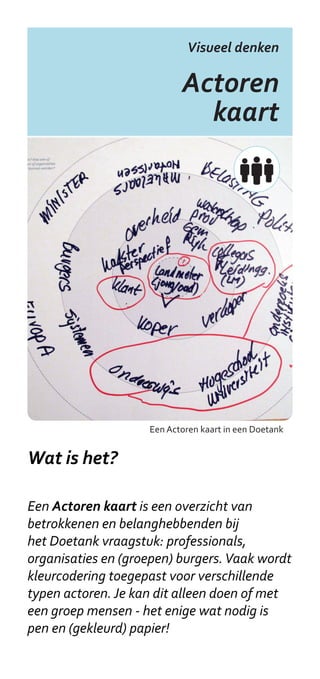 Visueel denken
Actoren
kaart
MINISTER
Notarissen
MAKELAARS
BELASTING
Polit
Waterschap
prov
Gem
Rijk
overheid
kadaster
perspectief
burgers
Systemen
Landmeter
(jong/oud)
klant
collega's
(LM)
koper
verkoper
onderwijs
Hogeschool
universiteit
EUROPA
Een Actoren kaart in een Doetank
Wat is het?
Een Actoren kaart is een overzicht van
betrokkenen en belanghebbenden bij
het Doetank vraagstuk: professionals,
organisaties en (groepen) burgers. Vaak wordt
kleurcodering toegepast voor verschillende
typen actoren. Je kan dit alleen doen of met
een groep mensen - het enige wat nodig is
pen en (gekleurd) papier!